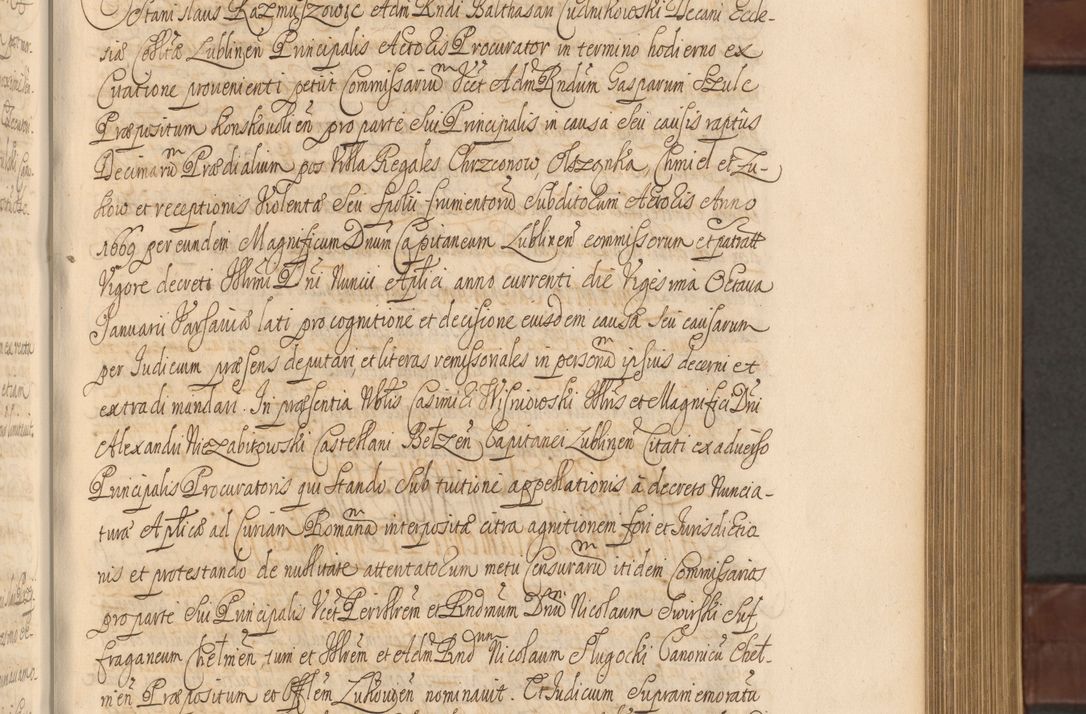 Stanislaus Kazmyszowic Adm Rndi Balthasari Cudnikowski Decani Eccle-
siæ Collitæ Lublinen Principalis Actoris Procurator in termino hodierno ex
Citatione provenienti petiit Commissarium Vcet Adm Rndum Gasparum Szulc
Præpositum Konskovolien pro parte Sui Principalis in causa seu causis raptus
Decimarum Prædialium pos Villa Regales Chrzconow, Olszonka, Chmiel et Zu-
kow et receptionis Violentæ seu spolii frumentorum subditorum Actoris Anno
1669 per eundem Magnificum Dnum Capitaneum Lublinen commissorum et patratt
Vigore decreti Illmi Dni Nuncii Aplici anno currenti die Vigesima Octava
Januarii Varsaviæ lati pro cognitione et decisione eiusdem causæ seu causarum
per Judicium præsens deputari, et literas remissoriales in personam ipsius decerni et
extradi mandari. In præsentia Nblis Casimiri Wisniowski Illris et Magnifici Dni
Alexandri Niezabitowski Castellani Belzen Capitanei Lublinen Citati ex adverso
Principalis Procuratoris qui stando sub tuitione appellationis à decreto Nuncia-
turæ Aplicæ ad Curiam Romanam interpositæ citra agnitionem fori et Jurisdictio
nis et protestando de nullitate attentatorum metu Censurarum itidem Commissarios
pro parte Sui Principalis Vcet Perillrem et Rndmum Dnum Nicolaum Swirski Suf
fraganeum Chelmen, tum et Illrem et Adm Rndum Nicolaum Slugocki Canonicum Chel-
men Præpositum et Offlem Lukovien nominavit. Et Judicium supramemorata